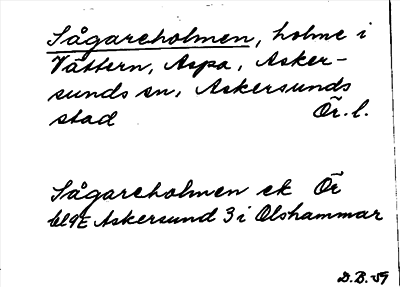 Sågareholmen, holme i
Vättern, Aspa, Asker-
sunds sn, Askersunds
stad Ör. l.
Sågareholmen ek Ör
bl 9E Askersund 3 i Olshammar
D.B. 59